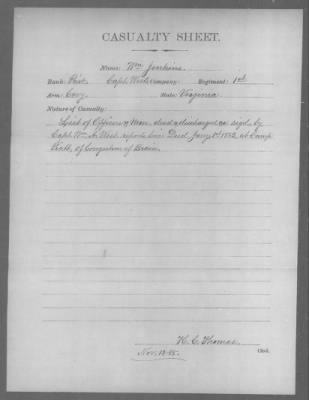 CASUALTY SHEET.
Name: Wm Jenkins
Rank: Priv. Capt. West's Company, Regiment: 1st
Arm: Cavy State: Virginia
Nature of Casualty:
List of Officers & Men, died & discharged, as signed by
Capt. Wm A. West reports him Died Jany 1st 1862 at Camp
of Congestion of Brain.
H. C. Thomas
Nov. 18-85. Clerk.